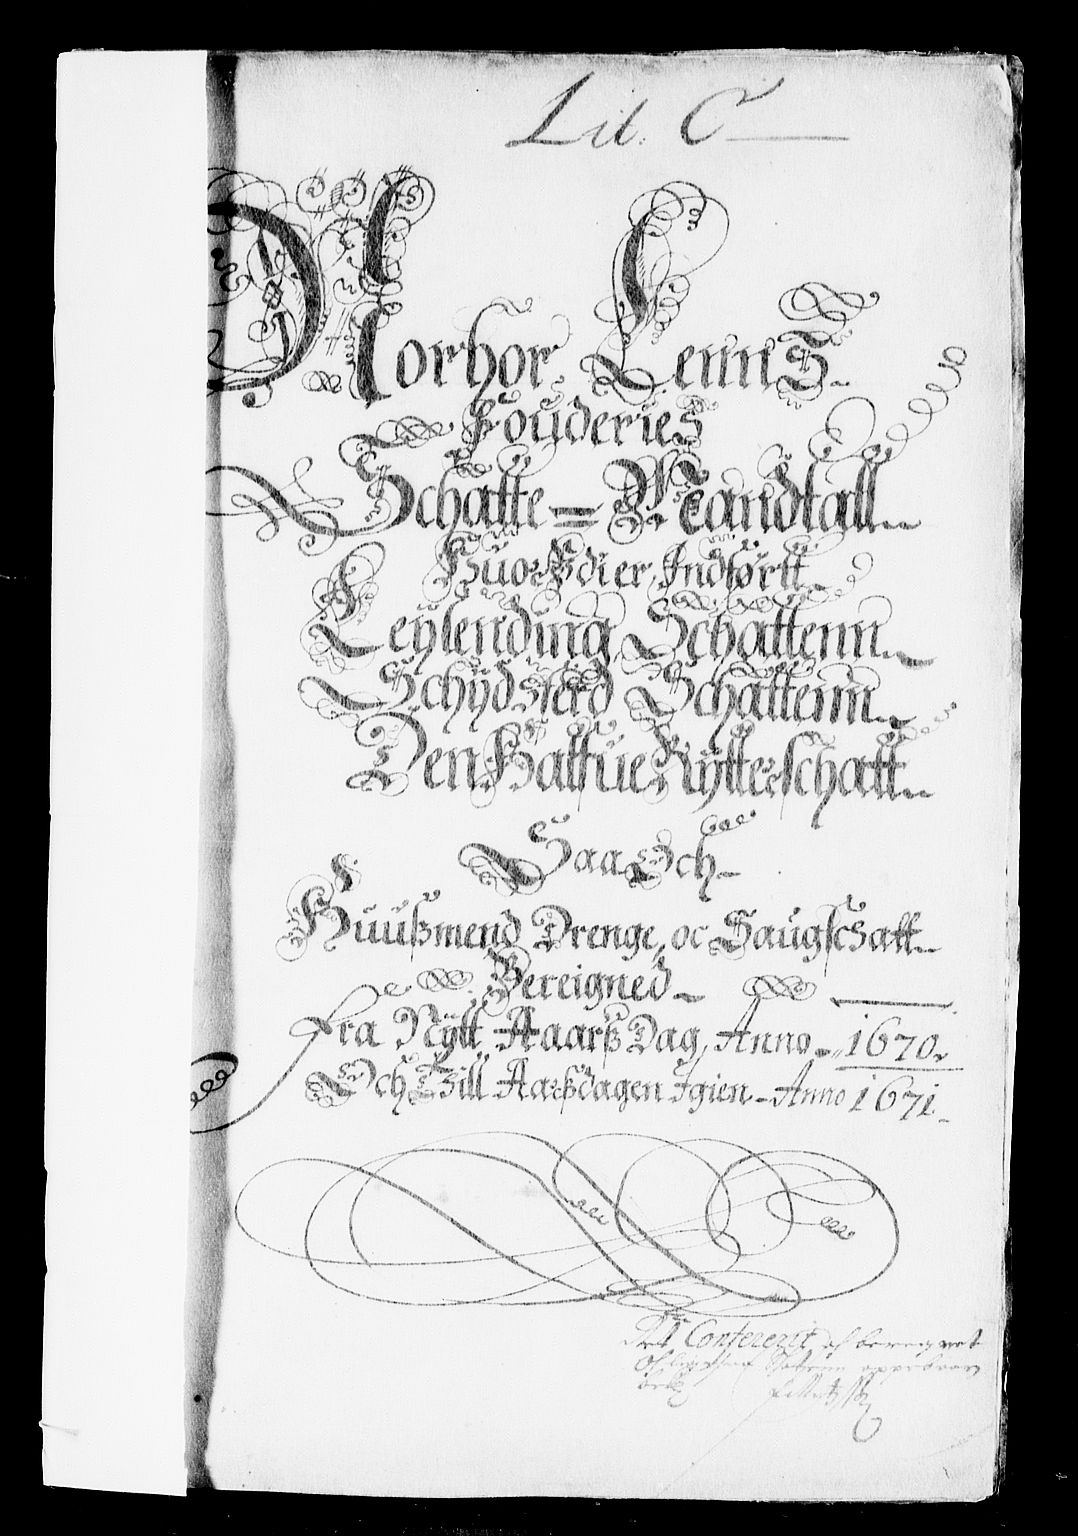 Lit. C
Norhor Lenns
Fouderies
Schatte = Mandtall
Huor Udi er Indført
Leylending Schattenn
Schydsferd Schattenn
Den Halfue Rytterschatt
Saa Och
Huußmend Drenge, oc Saugschatt
Bereigned
Fra Nytt Aarß Dag, Anno 1670.
Och Till Aarßdagen Igien Anno 1671.
Confererit of beregnet